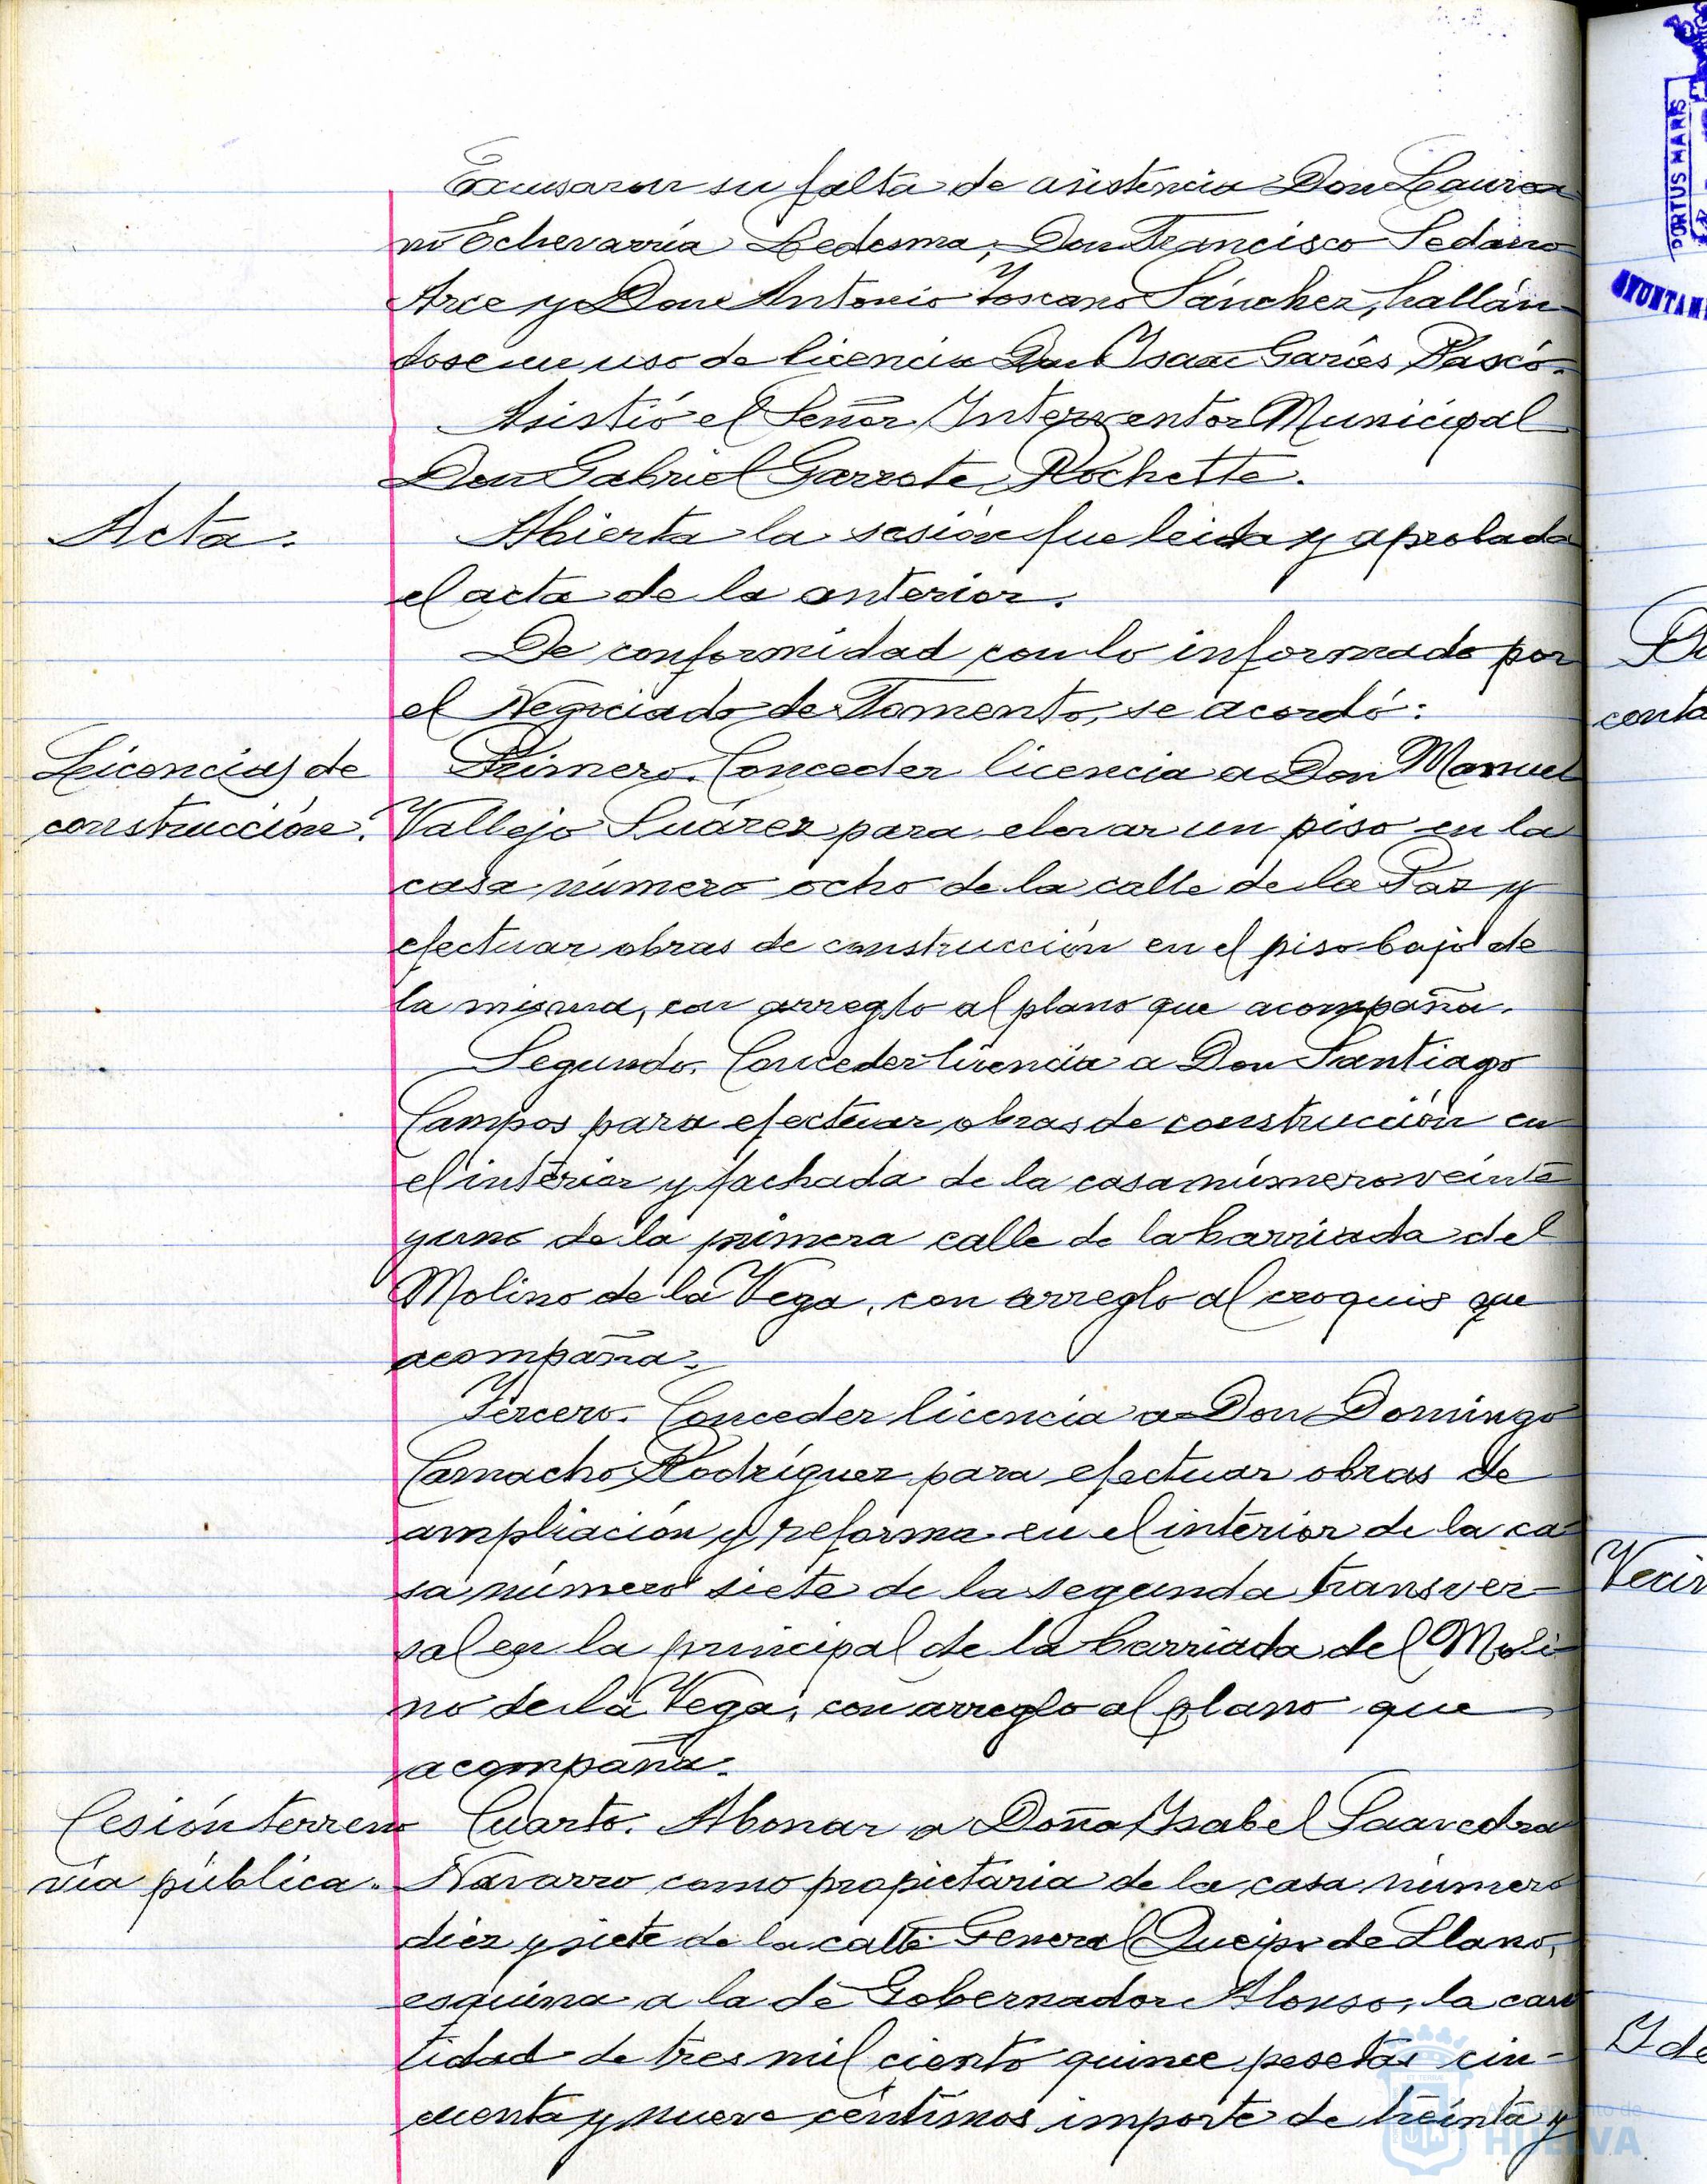 Excusaron su falta de asistencia Don Laurea
no Echevarría Ledesma, Don Francisco Sedano
Arce y Don Antonio Toscano Sánchez, hallán
dose en uso de licencia Don Isaac Garcés Pascó.
Asistió el Señor Interventor Municipal
Don Gabriel Garrote Rochette.
Acta.
Abierta la sesión fue leida y aprobada
el acta de la anterior.
De conformidad con lo informado por
el Negociado de Fomento, se acordó:
Licencias de
construcción.
Primero. Conceder licencia a Don Manuel
Vallejo Suárez para elevar un piso en la
casa número ocho de la calle de la Paz y
efectuar obras de construcción en el piso bajo de
la misma, con arreglo al plano que acompaña.
Segundo. Conceder licencia a Don Santiago
Campos para efectuar obras de construcción en
el interior y fachada de la casa número veinte
y uno de la primera calle de la barriada del
Molino de la Vega, con arreglo al croquis que
acompaña.
Tercero. Conceder licencia a Don Domingo
Camacho Rodríguez para efectuar obras de
ampliación y reforma en el interior de la ca-
sa número siete de la segunda transver-
sal en la principal de la barriada del Moli-
no de la Vega, con arreglo al plano que
acompaña.
Cesión terreno
vía pública.
Cuarto. Abonar a Doña Isabel Saavedra
Navarro como propietaria de la casa número
diez y siete de la calle General Queipo de Llano,
esquina a la de Gobernador Alonso, la can
tidad de tres mil ciento quince pesetas cin-
cuenta y nueve céntimos importe de treinta y
PORTUS MARIS
AYUNTAM
conta
Vecin
Ayuntamiento de
HUELVA